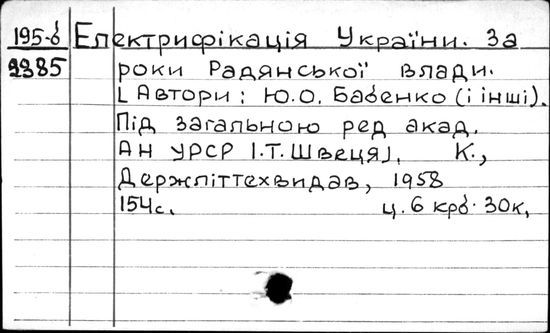 195-б Електрифікація України. За
9385 роки Радянської влади.
[Автори: Ю.О. Бабенко (і інші).
Під загальною ред акад.
АН УРСР І.Т. Швеця], К.,
Держліттехвидав, 1958
154с. ц. 6 крб. 30к.